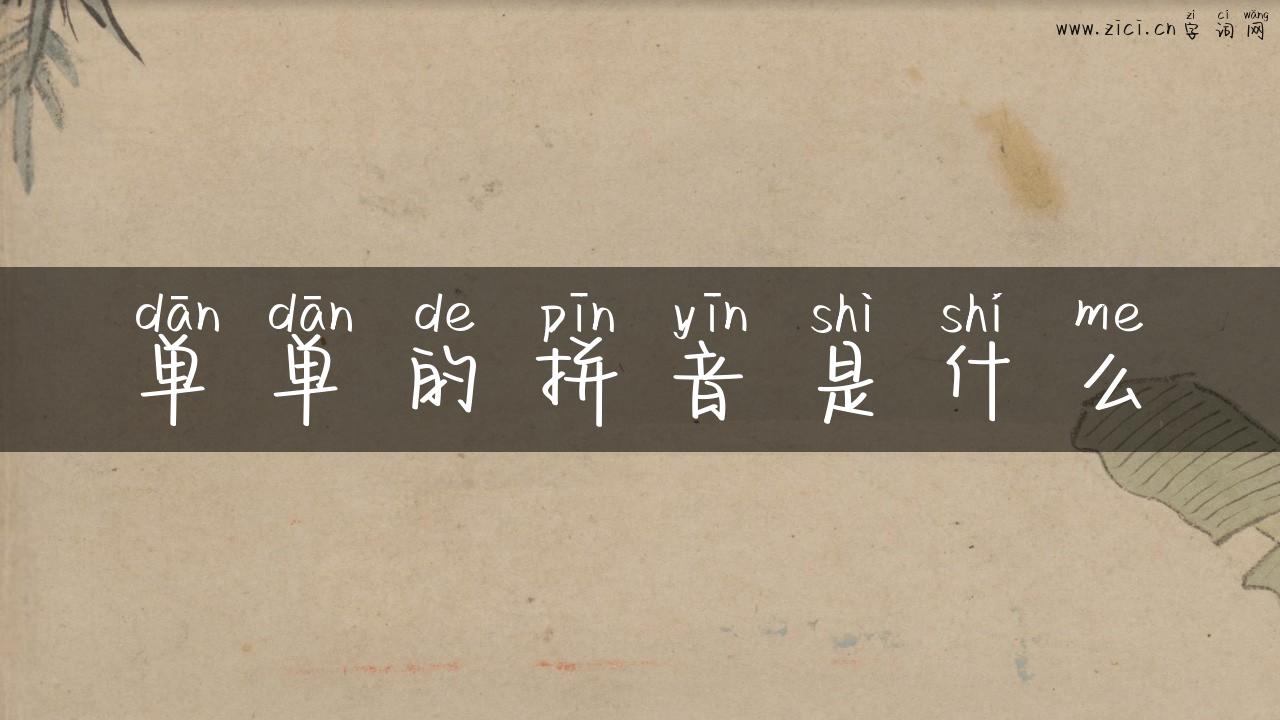 zì cí wǎng
www.zici.cn 字词网
dān dān de pīn yīn shì shí me
单单的拼音是什么